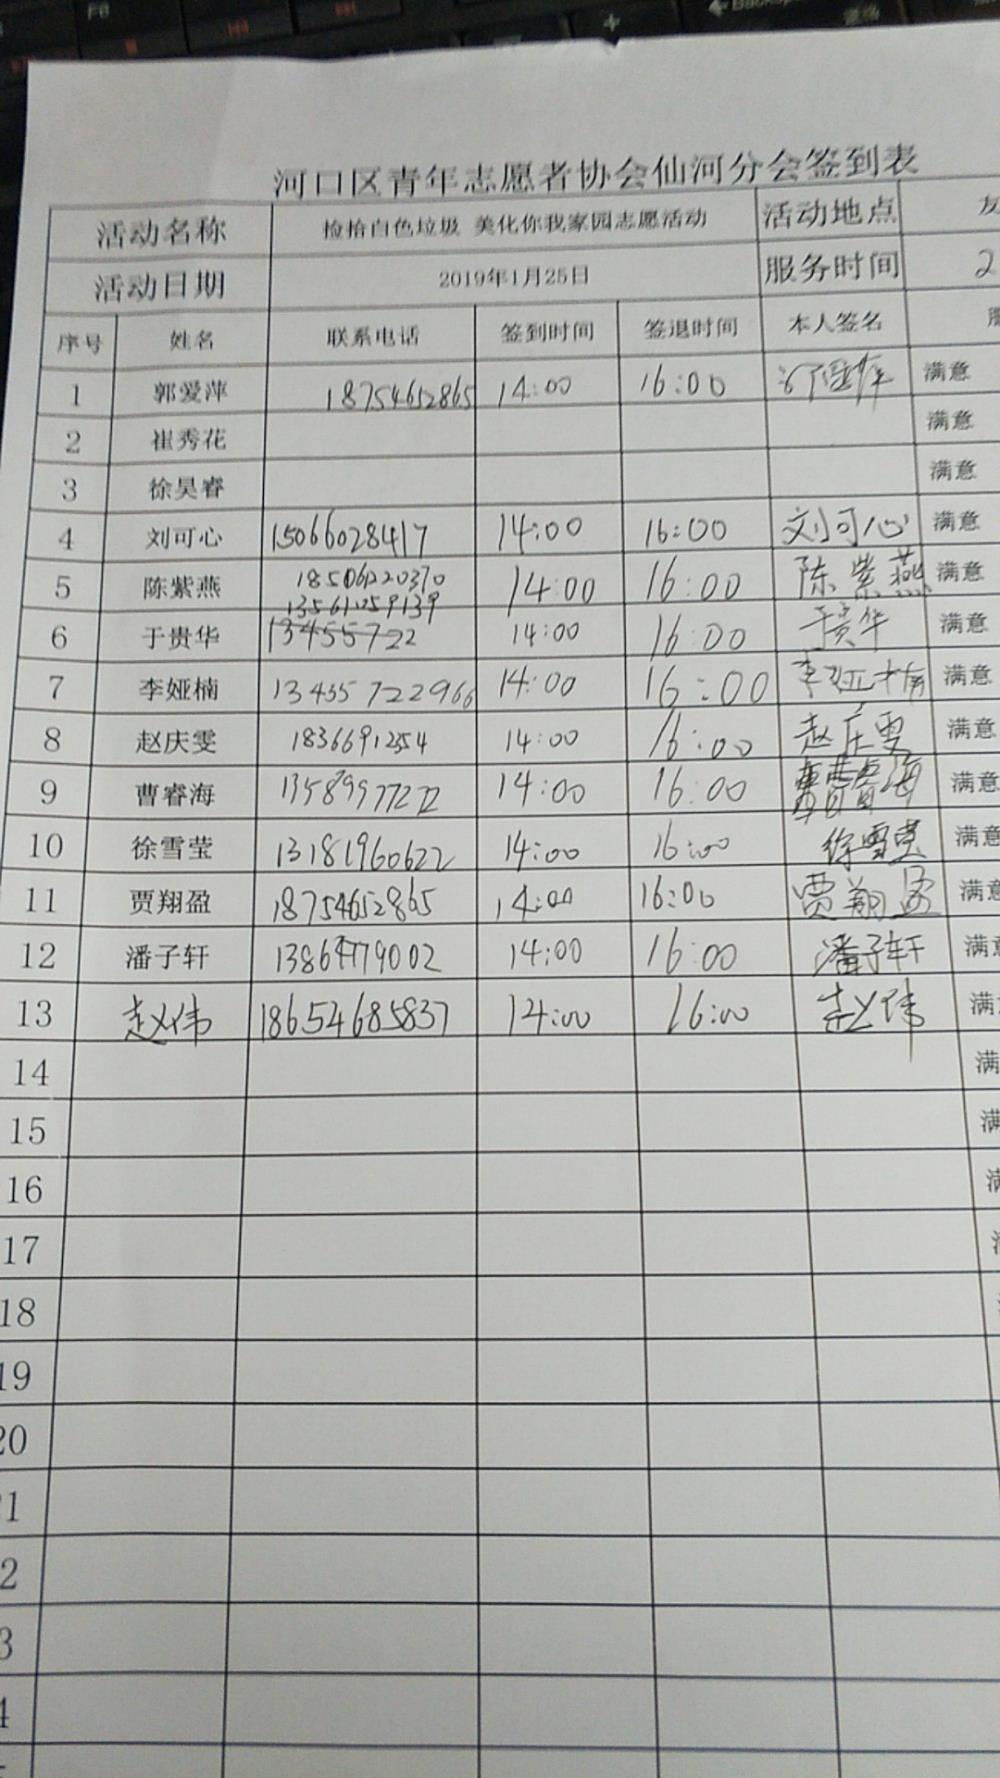 河口区青年志愿者协会仙河分会签到表
活动名称 捡拾白色垃圾 美化你我家园志愿活动 活动地点 友
活动日期 2019年1月25日 服务时间 2
序号 姓名 联系电话 签到时间 签退时间 本人签名
1 郭爱萍 18754652865 14:00 16:00 满意
2 崔秀花 满意
3 徐昊睿 满意
4 刘可心 15066028417 14:00 16:00 刘可心 满意
5 陈紫燕 18506220370 14:00 16:00 陈紫燕 满意
13561259139
6 于贵华 13455722 14:00 16:00 于贵华 满意
7 李娅楠 13455722966 14:00 16:00 李娅楠 满意
8 赵庆雯 18366912554 14:00 16:00 赵庆雯 满意
9 曹睿海 13589977272 14:00 16:00 曹睿海 满意
10 徐雪莹 13181960622 14:00 16:00 徐雪莹 满意
11 贾翔盈 18754652865 14:00 16:00 贾翔盈 满意
12 潘子轩 13864779002 14:00 16:00 潘子轩 满意
13 赵义伟 18654685837 14:00 16:00 赵义伟 满
14 满
15 满
16
17
18
19
20